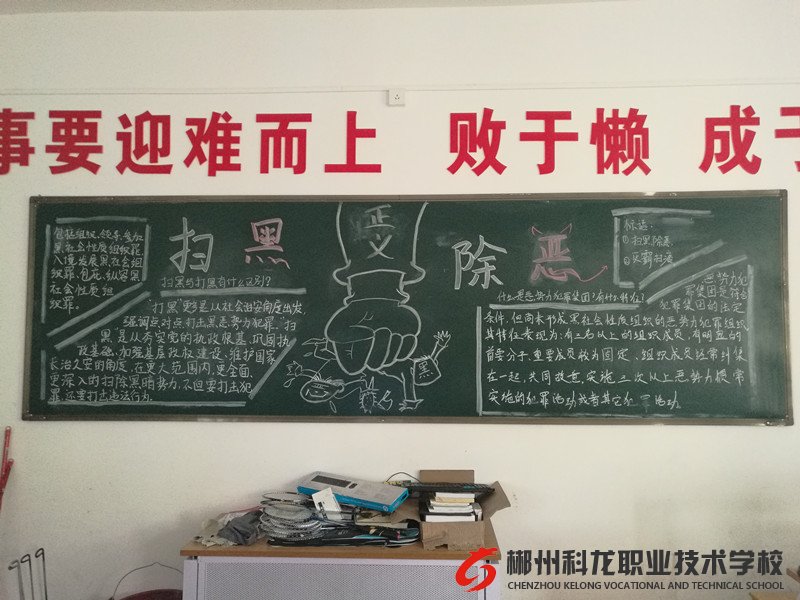 事要迎难而上 败于懒 成于
扫黑 除恶
正义
包括组织、领导、参加
黑社会性质组织罪
入境发展黑社会组
织罪、包庇、纵容黑
社会性质组
织罪。
扫黑与打黑有什么区别?
"打黑"更多是从社会治安角度出发,
强调点对点打击黑恶势力犯罪。"扫
黑"是从夯实党的执政根基、巩固执
政基础、加强基层政权建设、维护国家
长治久安的角度,在更大范围内,更全面,
更深入的扫除黑恶势力,不但要打击犯
罪,还要打击违法行为。
黑
标语:
①扫黑除恶
②
什么是恶势力犯罪集团?有什么特征?
恶势力犯
罪集团是符合
犯罪集团的法定
条件,但尚未形成黑社会性质组织的恶势力犯罪组织
其特征表现为:有三名以上的组织成员,有明显的
首要分子,重要成员较为固定,组织成员经常纠集
在一起,共同故意,实施三次以上恶势力惯常
实施的犯罪活动或者其它犯罪活动。
郴州科龙职业技术学校
CHENZHOU KELONG VOCATIONAL AND TECHNICAL SCHOOL